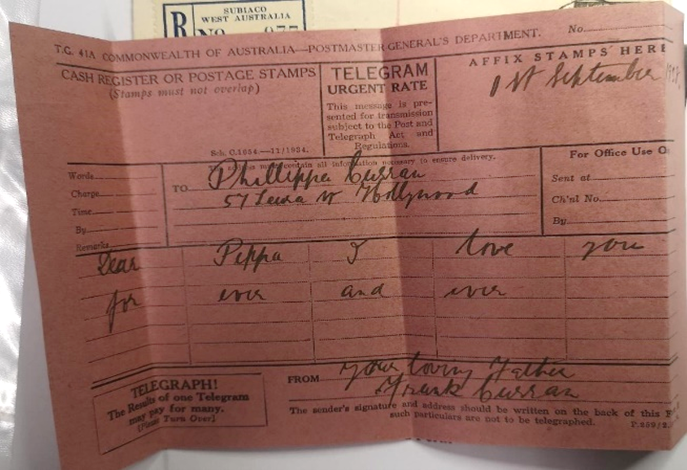 R
SUBIACO
WEST AUSTRALIA
T.G. 41A COMMONWEALTH OF AUSTRALIA—POSTMASTER GENERAL'S DEPARTMENT. No.
CASH REGISTER OR POSTAGE STAMPS
(Stamps must not overlap)
Sch. C.1054.—12/1954.
TELEGRAM
URGENT RATE
This message is pre-
sented for transmission
subject to the Post and
Telegraph Act and
Regulations.
AFFIX STAMPS HERE
1st September
contain all information necessary to ensure delivery.
Words
Charge
Time
By
Remarks
TO Phillippa Curran
57
For Office Use
Sent at
Ch'nl No.
By
Dear Pippa I love you
for ever and ever
TELEGRAPH!
The Results of one Telegram
may pay for many.
(Please Turn Over)
FROM your loving Father
Frank Curran
The sender's signature and address should be written on the back of this
such particulars are not to be telegraphed.